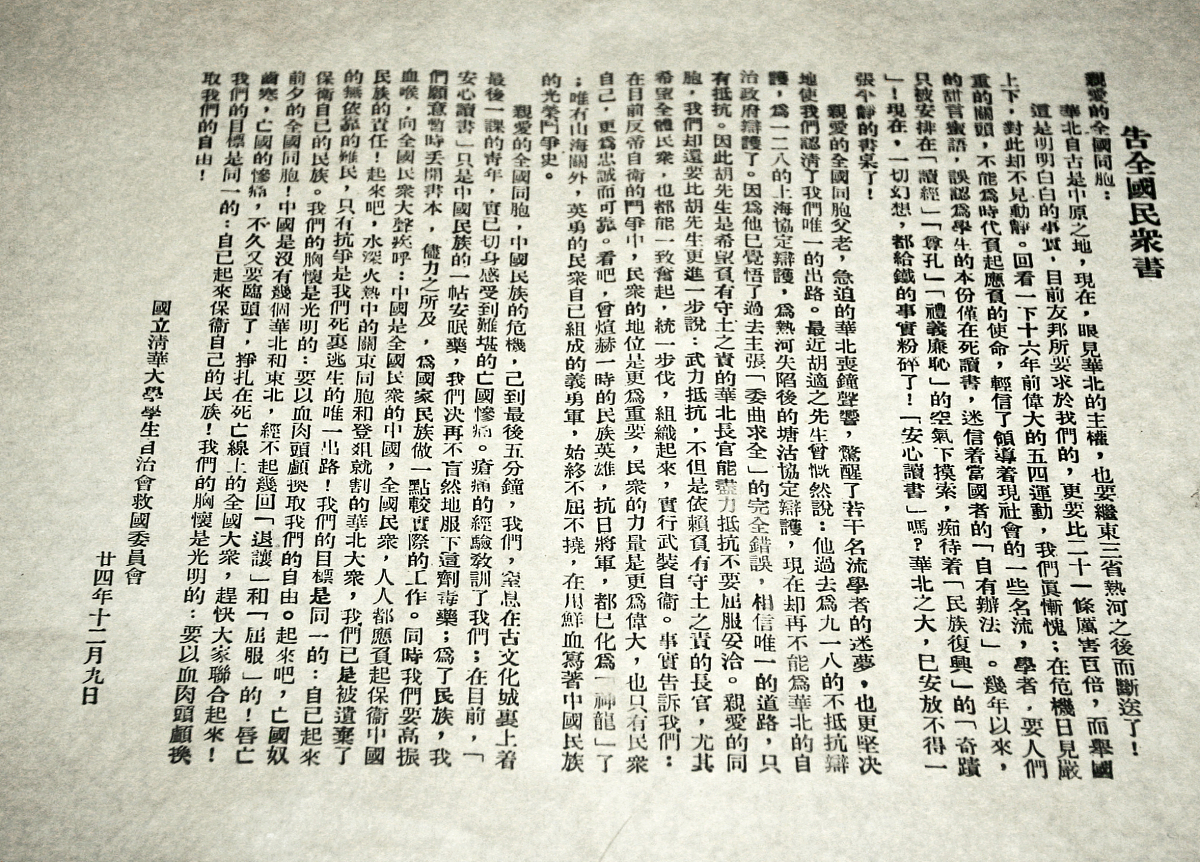 告全國民衆書
親愛的全國同胞：
華北自古是中原之地，現在，眼見華北的主權，也要繼東三省熱河之後而斷送了！
這是明明白白的事實，目前友邦所要求於我們的，更要比二十一條厲害百倍，而舉國
上下，對此却不見動靜。回看一下十六年前偉大的五四運動，我們眞慚愧；在危機日見嚴
重的關頭，不能爲時代負起應負的使命，輕信了領導着現社會的一些名流，學者，要人們
的甜言蜜語，誤認爲學生的本份僅在死讀書，迷信着當國者的「自有辦法」。幾年以來，
只被安排在「讀經」「尊孔」「禮義廉恥」的空氣下摸索，痴待着「民族復興」的「奇蹟
」！現在，一切幻想，都給鐵的事實粉碎了！「安心讀書」嗎？華北之大，已安放不得一
張平靜的書桌了！
親愛的全國同胞父老，急迫的華北喪鐘聲響，驚醒了若干名流學者的迷夢，也更堅决
地使我們認清了我們唯一的出路。最近胡適之先生曾慨然說：他過去爲九一八的不抵抗辯
護，爲一二八的上海協定辯護，爲熱河失陷後的塘沽協定辯護，現在却再不能爲華北的自
治政府辯護了。因爲他已覺悟了過去主張「委曲求全」的完全錯誤，相信唯一的道路，只
有抵抗。因此胡先生是希望負有守土之責的華北長官能盡力抵抗不要屈服妥洽。親愛的同
胞，我們却還要比胡先生更進一步說：武力抵抗，不但是依賴負有守土之責的長官，尤其
希望全體民衆，也都能一致奮起，統一步伐，組織起來，實行武裝自衞。事實告訴我們：
在目前反帝自衞的鬥爭中，民衆的地位是更爲重要，民衆的力量是更爲偉大，也只有民衆
自己，更爲忠誠而可靠。看吧，曾煊赫一時的民族英雄，抗日將軍，都已化爲「神龍」了
；唯有山海關外，英勇的民衆自己組成的義勇軍，始終不屈不撓，在用鮮血寫著中國民族
的光榮鬥爭史。
親愛的全國同胞，中國民族的危機，已到最後五分鐘，我們，窒息在古文化城裏上着
最後一課的青年，實已切身感受到難堪的亡國慘痛。瘡痛的經驗敎訓了我們；在目前，「
安心讀書」只是中國民族的一帖安眠藥，我們决再不盲然地服下這劑毒藥；爲了民族，我
們願意暫時丢開書本，儘力之所及，爲國家民族做一點較實際的工作。同時我們要高振
血喉，向全國民衆大聲疾呼：中國是全國民衆的中國，全國民衆，人人都應負起保衞中國
民族的責任！起來吧，水深火熱中的關東同胞和登俎就割的華北大衆，我們已是被遺棄了
的無依靠的難民，只有抗爭是我們死裏逃生的唯一出路！我們的目標是同一的：自己起來
保衞自己的民族。我們的胸懷是光明的：要以血肉頭顱換取我們的自由。起來吧，亡國奴
前夕的全國同胞！中國是沒有幾個華北和東北，經不起幾回「退讓」和「屈服」的！唇亡
齒寒，亡國的慘痛，不久又要臨頭了，掙扎在死亡線上的全國大衆，趕快大家聯合起來！
我們的目標是同一的：自己起來保衞自己的民族！我們的胸懷是光明的：要以血肉頭顱換
取我們的自由！
國立清華大學學生自治會救國委員會
廿四年十二月九日